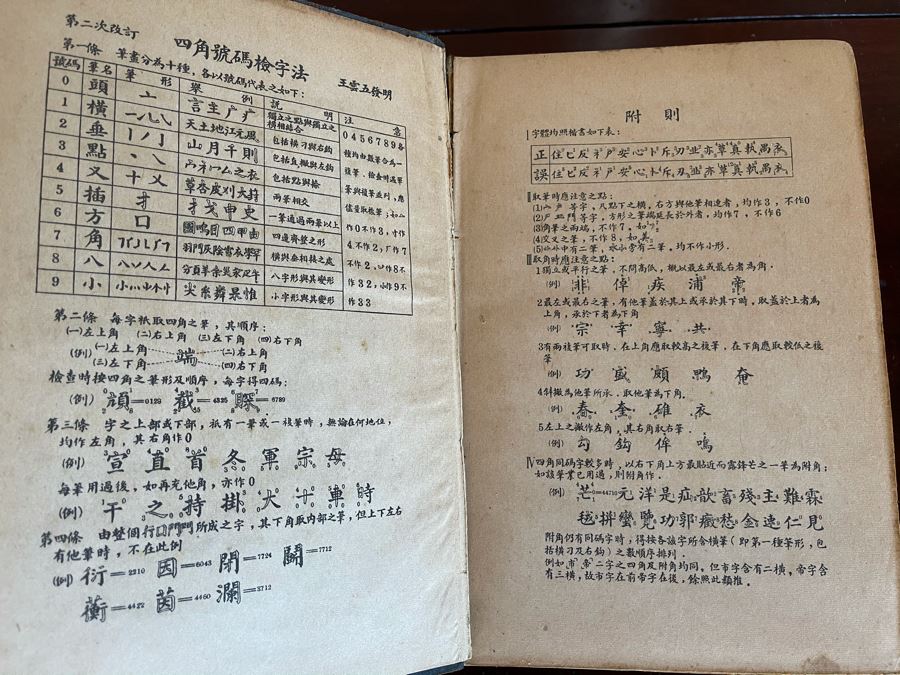 第二次改訂
四角號碼檢字法
王雲五發明
第一條 筆畫分為十種，各以號碼代表之如下：
號碼 筆名 筆形 舉例 說明 注意
0 頭 亠 言主广疒 獨立之點與獨立之橫相結合
1 橫 一㇀乚㇂ 天土地江元風 包括橫刁與右鈎
2 垂 丨丿亅 山月千則 包括直撇與左鈎
3 點 丶㇏ 包括點與捺
4 叉 十乂 草杏皮刈大葑 兩筆相交
5 插 扌 才戈申史 一筆通過兩筆以上
6 方 口 國鳴目四甲由 四邊齊整之形
7 角 羽門灰陰雪衣學罕 橫與垂相接之處
8 八 八丷人𠂉 分頁羊余災氺疋午 八字形與其變形
9 小 尖糸粦杲惟 小字形與其變形
0 4 5 6 7 8 9 各種均由數筆合為一複筆，檢查時遇單筆與複筆並列，應儘量取複筆；如亠作0不作3，寸作4不作2，厂作7不作2，丷作8不作32，小作9不作33
第二條 每字祇取四角之筆，其順序：
(一)左上角 (二)右上角 (三)左下角 (四)右下角
(例) (一)左上角 (二)右上角
端
(三)左下角 (四)右下角
檢查時按四角之筆形及順序，每字得四碼：
(例) 顏=0128 截=4325 䁖=6789
第三條 字之上部或下部，祇有一筆或一複筆時，無論在何地位，
均作左角，其右角作0
(例) 宣 直 首 冬 軍 宗 母
每筆用過後，如再充他角，亦作0
(例) 干 之 持 掛 大 十 車 時
第四條 由整個行囗門鬥所成之字，其下角取內部之筆，但上下左右
有他筆時，不在此例
(例) 衍=2210 因=6043 閉=7724 鬭=7712
蘅=4422 茵=4460 瀾=3712
附則
Ⅰ字體均照楷書如下表：
正 住 匕 反 礻 戶 安 心 卜 斥 刃 业 亦 草 真 執 禺 衣
誤 住 匕 反 礻 戶 安 心 卜 斥 刃 业 亦 草 真 執 禺 衣
Ⅱ取筆時應注意之點：
(1)宀戶等字，凡點下之橫，右方與他筆相連者，均作3，不作0
(2)尸皿門等字，方形之筆端延長於外者，均作7，不作6
(3)角筆之兩端，不作7，如
(4)筆叉之筆，不作8，如美
(5)中有二筆，水小旁有二筆，均不作小形．
Ⅲ取角時應注意之點：
1獨立或平行之筆，不問高低，概以最左或最右者為角．
(例) 非 倬 疾 浦 帝
2最左或最右之筆，有他筆蓋於其上或承於其下時，取蓋於上者為
上角，承於下者為下角
(例) 宗 幸 寧 共
3有兩複筆可取時，在上角應取較高之複筆，在下角應取較低之複
筆
(例) 功 盛 頗 鴨 奄
4斜撇為他筆所承，取他筆為下角．
(例) 春 奎 碓 衣
5左上之撇作左角，其右角取右筆．
(例) 勾 鈎 侔 鳴
Ⅳ四角同碼字較多時，以右下角上方最貼近而露鋒芒之一筆為附角；
如該筆業已用過，則附角作．
(例) 芒=44710 元 洋 是 疝 歆 畜 殘 主 難 霖
毯 拼 蠻 覽 功 郭 癥 愁 金 速 仁 見
附角仍有同碼字時，得按各該字所含橫筆（即第一種筆形，包
括橫刁及右鈎）之數順序排列．
例如市帝二字之四角及附角均同，但市字含有二橫，帝字含
有三橫，故市字在前帝字在後，餘照此類推．